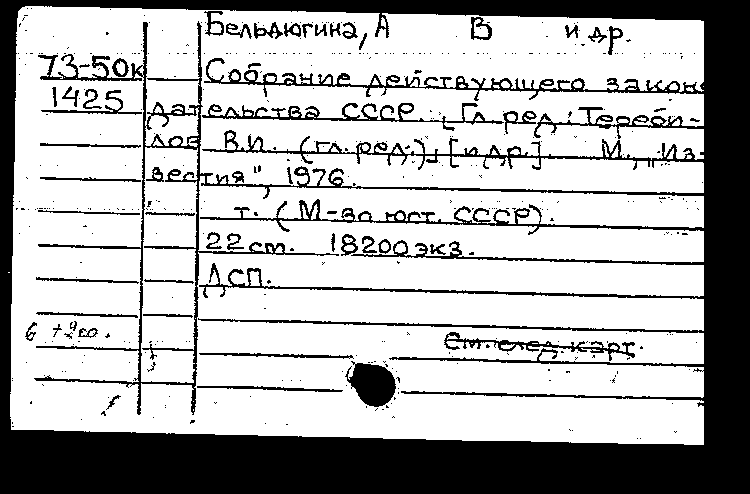 Бельдюгина, А В и др.
73-50к Собрание действующего законо
1425 дательства СССР. [Гл. ред.: Тереби-
лов В.И. (гл. ред.)] [и др.]. М., „Из-
вестия", 1976.
т. (М-во юст. СССР).
22 ст. 18200 экз.
ДСП.
См. след. карт.